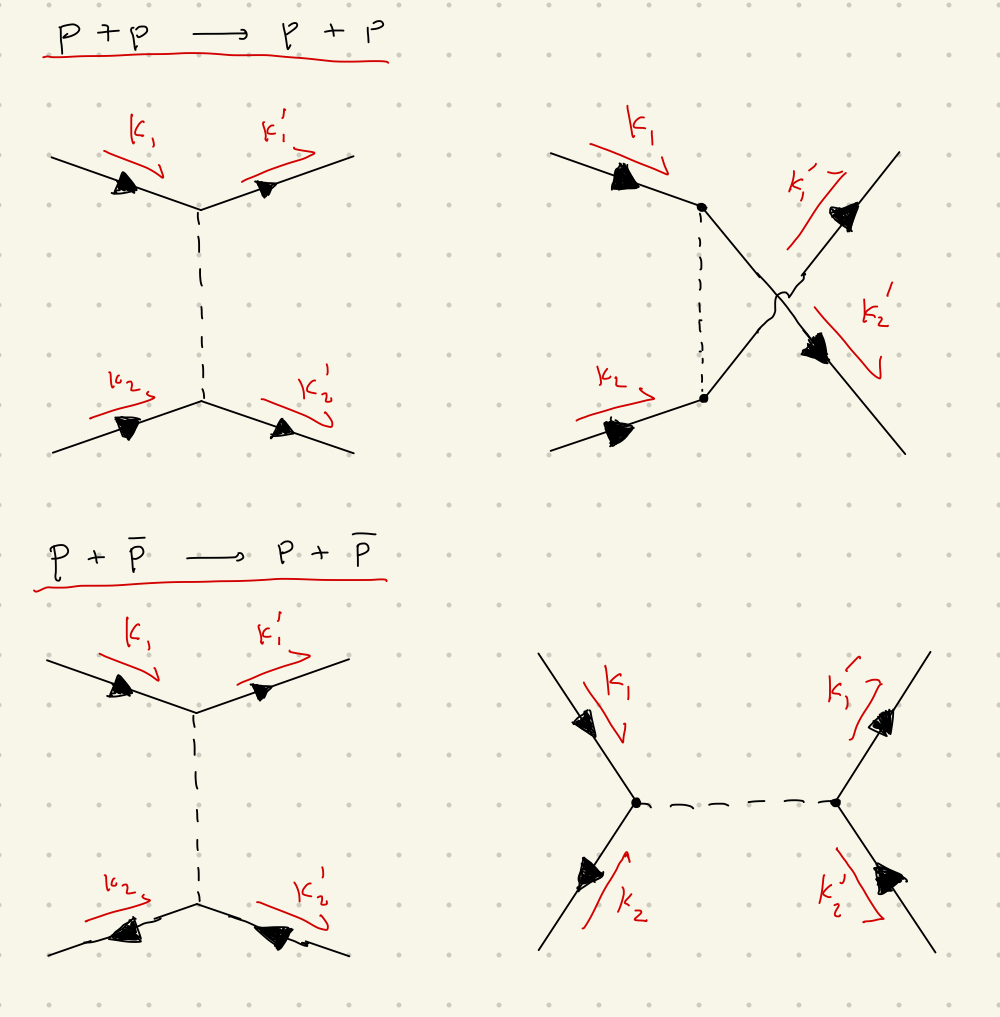 p + p ⟶ p + p
k₁ k₁'
k₂ k₂'
k₁ k₁'
k₂ k₂'
p + p̄ ⟶ p + p̄
k₁ k₁'
k₂ k₂'
k₁ k₁'
k₂ k₂'